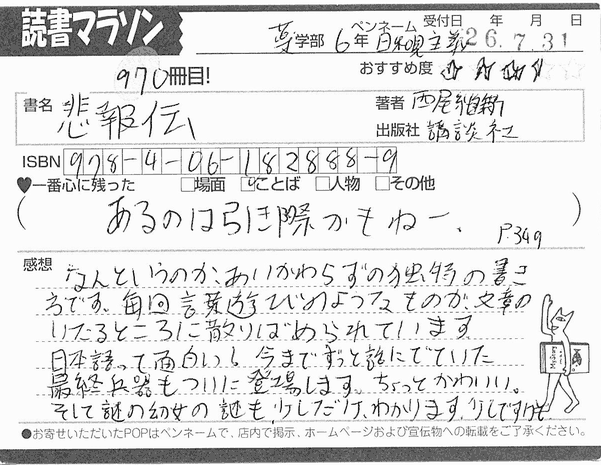 読書マラソン
薬学部 6年 ペンネーム 日和見主義 受付日 年 月 日 26.7.31
970冊目! おすすめ度 ☆☆☆☆☆
書名 悲報伝 著者 西尾維新
出版社 講談社
ISBN 978-4-06-182888-9
♥一番心に残った □場面 □ことば □人物 □その他
(あるのは引き際かもねー。 P.349)
感想 なんというのか、あいかわらずの独特の書き
方です。毎回言葉遊びのようなものが、文章の
いたるところに散りばめられています
日本語って面白い。今までずっと謎にでていた
最終兵器もついに登場します。ちょっとかわいい。
そして謎の幼女の謎も、少しだけ、わかります。少しですけど
●お寄せいただいたPOPはペンネームで、店内で掲示、ホームページおよび宣伝物への転載をご了承ください。